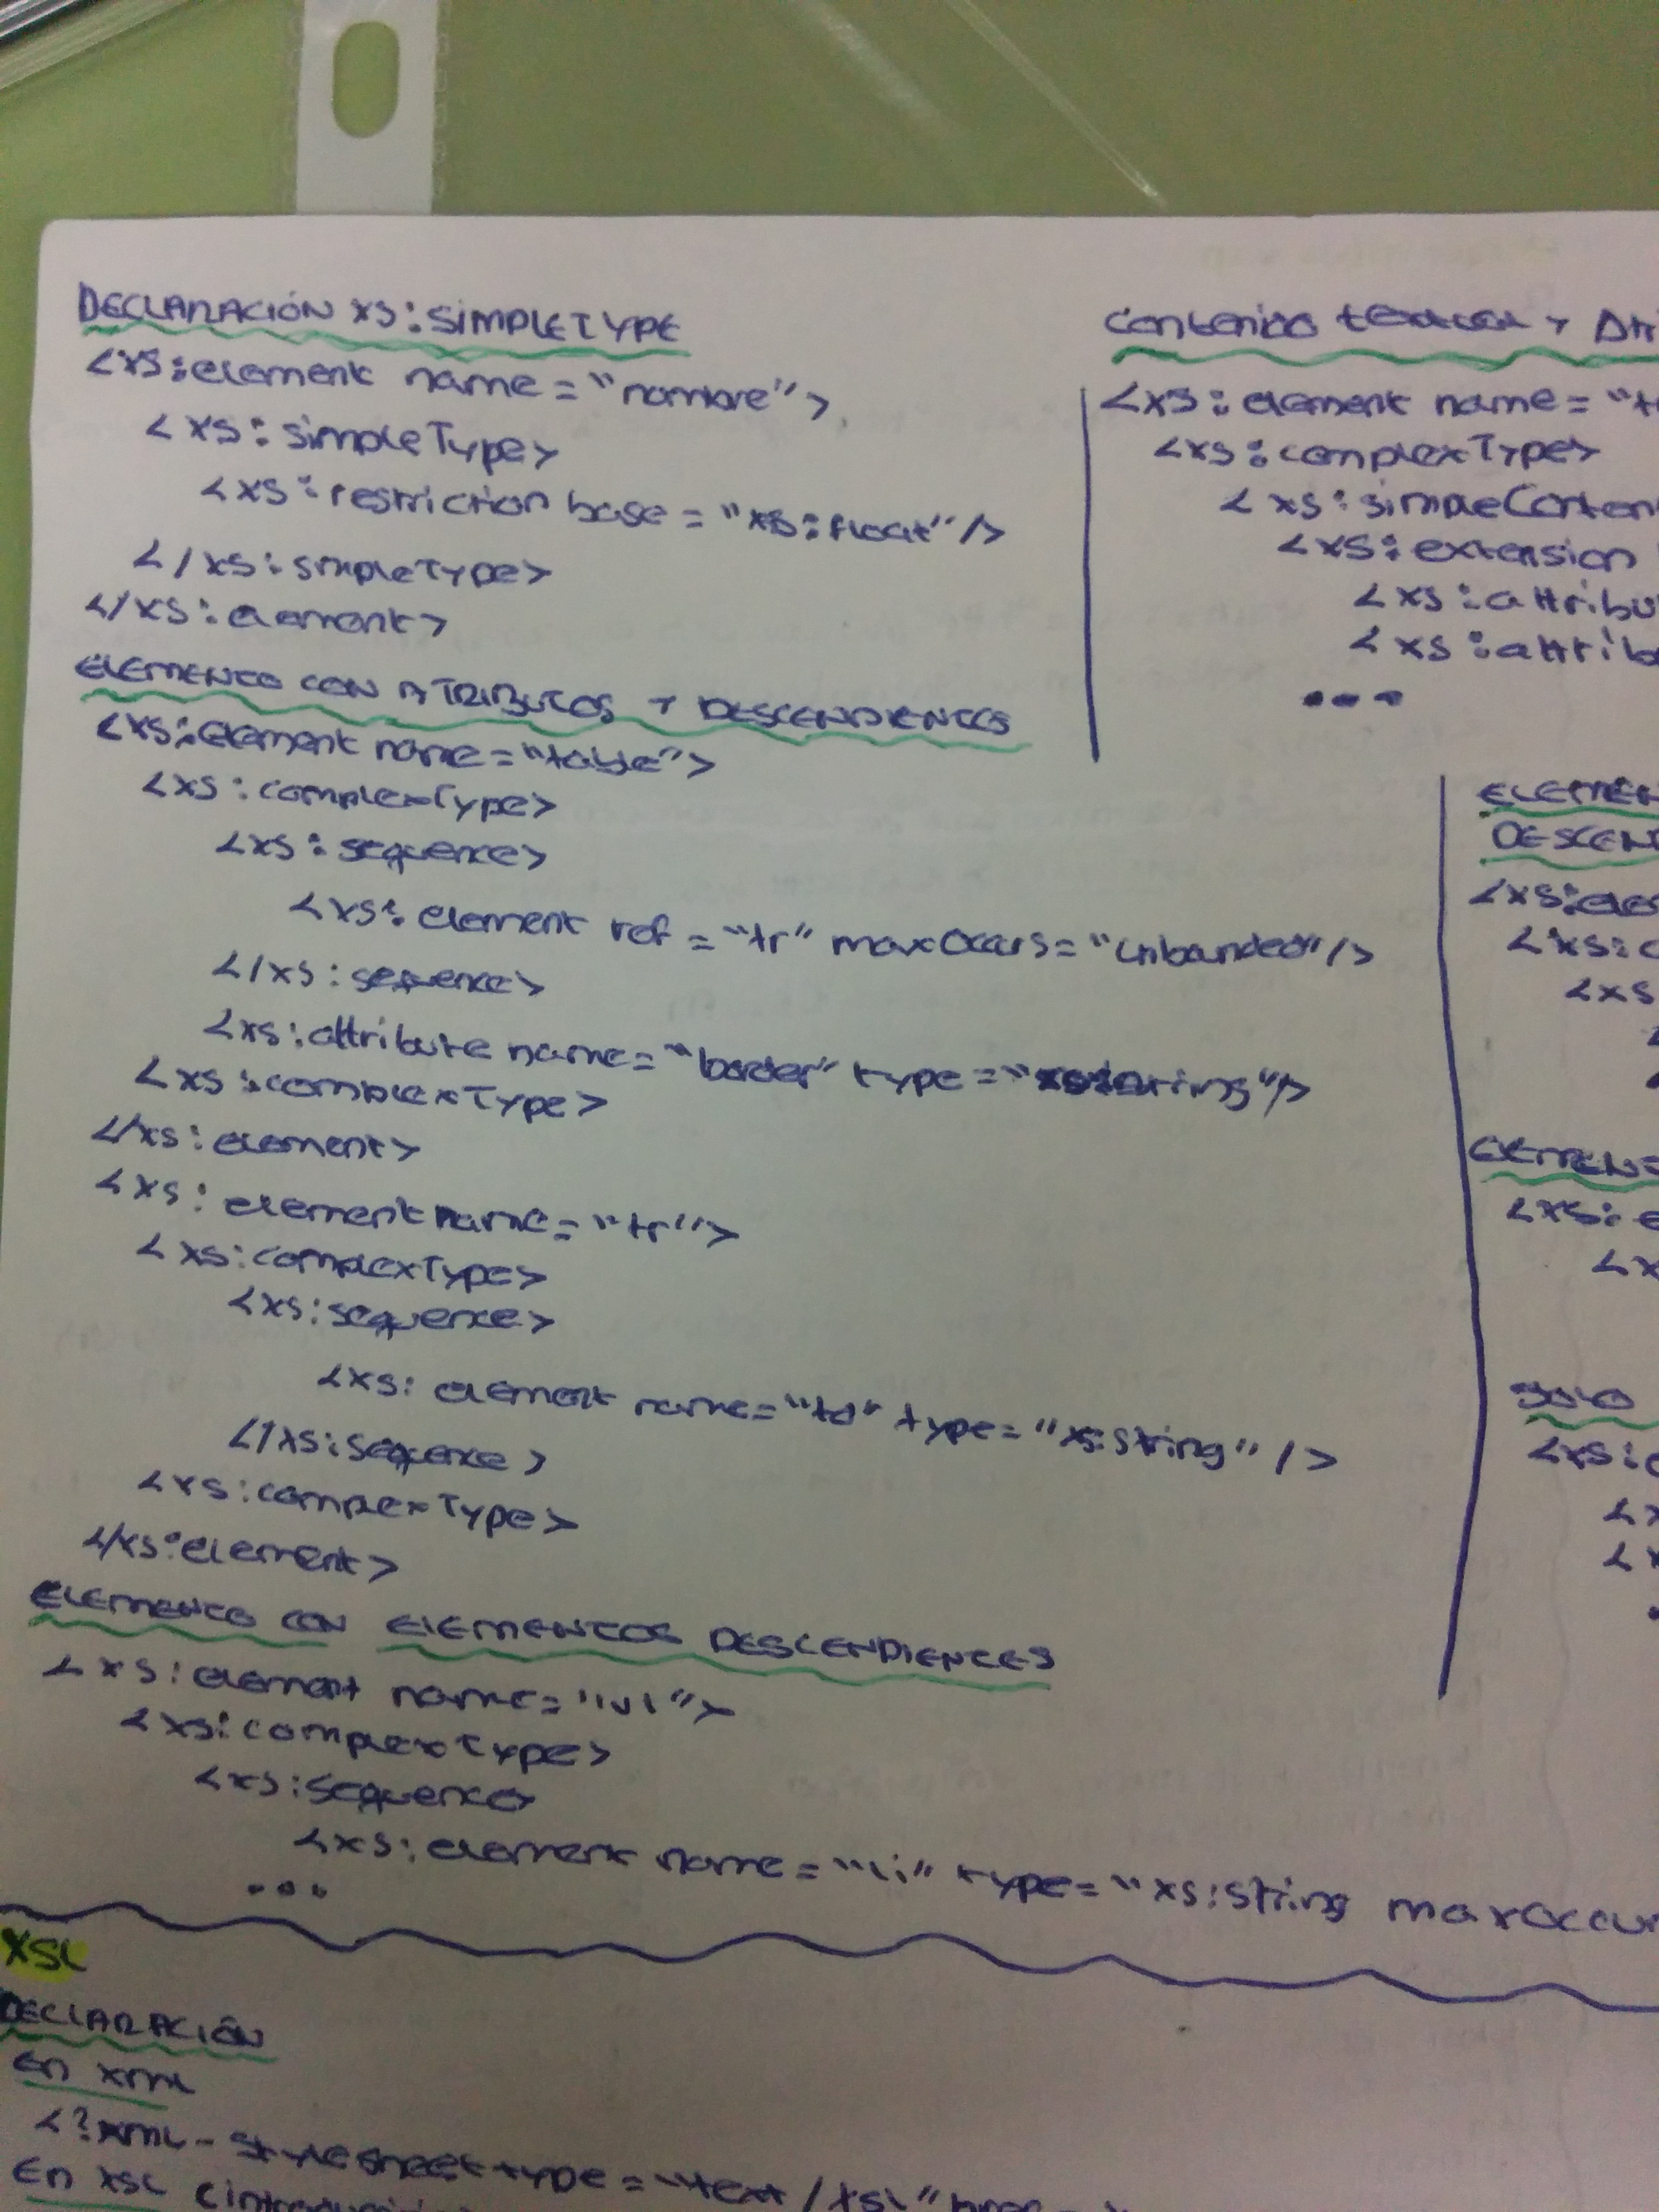 DECLARACIÓN XS:SIMPLETYPE
<xs:element name="nombre">
<xs:simpleType>
<xs:restriction base="xs:float"/>
</xs:simpleType>
</xs:element>
ELEMENTO CON ATRIBUTOS Y DESCENDIENTES
<xs:element name="table">
<xs:complexType>
<xs:sequence>
<xs:element ref="tr" maxOccurs="unbounded"/>
</xs:sequence>
<xs:attribute name="border" type="xs:string"/>
<xs:complexType>
</xs:element>
<xs:element name="tr">
<xs:complexType>
<xs:sequence>
<xs:element name="td" type="xs:string"/>
</xs:sequence>
<xs:complexType>
</xs:element>
ELEMENTO CON ELEMENTOS DESCENDIENTES
<xs:element name="ul">
<xs:complexType>
<xs:sequence>
<xs:element name="li" type="xs:string maxOccur
...
Contenido textual y Atri
<xs:element name="t
<xs:complexType>
<xs:simpleConten
<xs:extension
<xs:attribu
<xs:attrib
...
ELEMEN
DESCEN
<xs:ele
<xs:c
<xs
ELEMEN
<xs:e
<x
SOLO
<xs:e
<x
<x
XSL
DECLARACIÓN
En xml
<?xml-stylesheet type="text/xsl"
En XSL